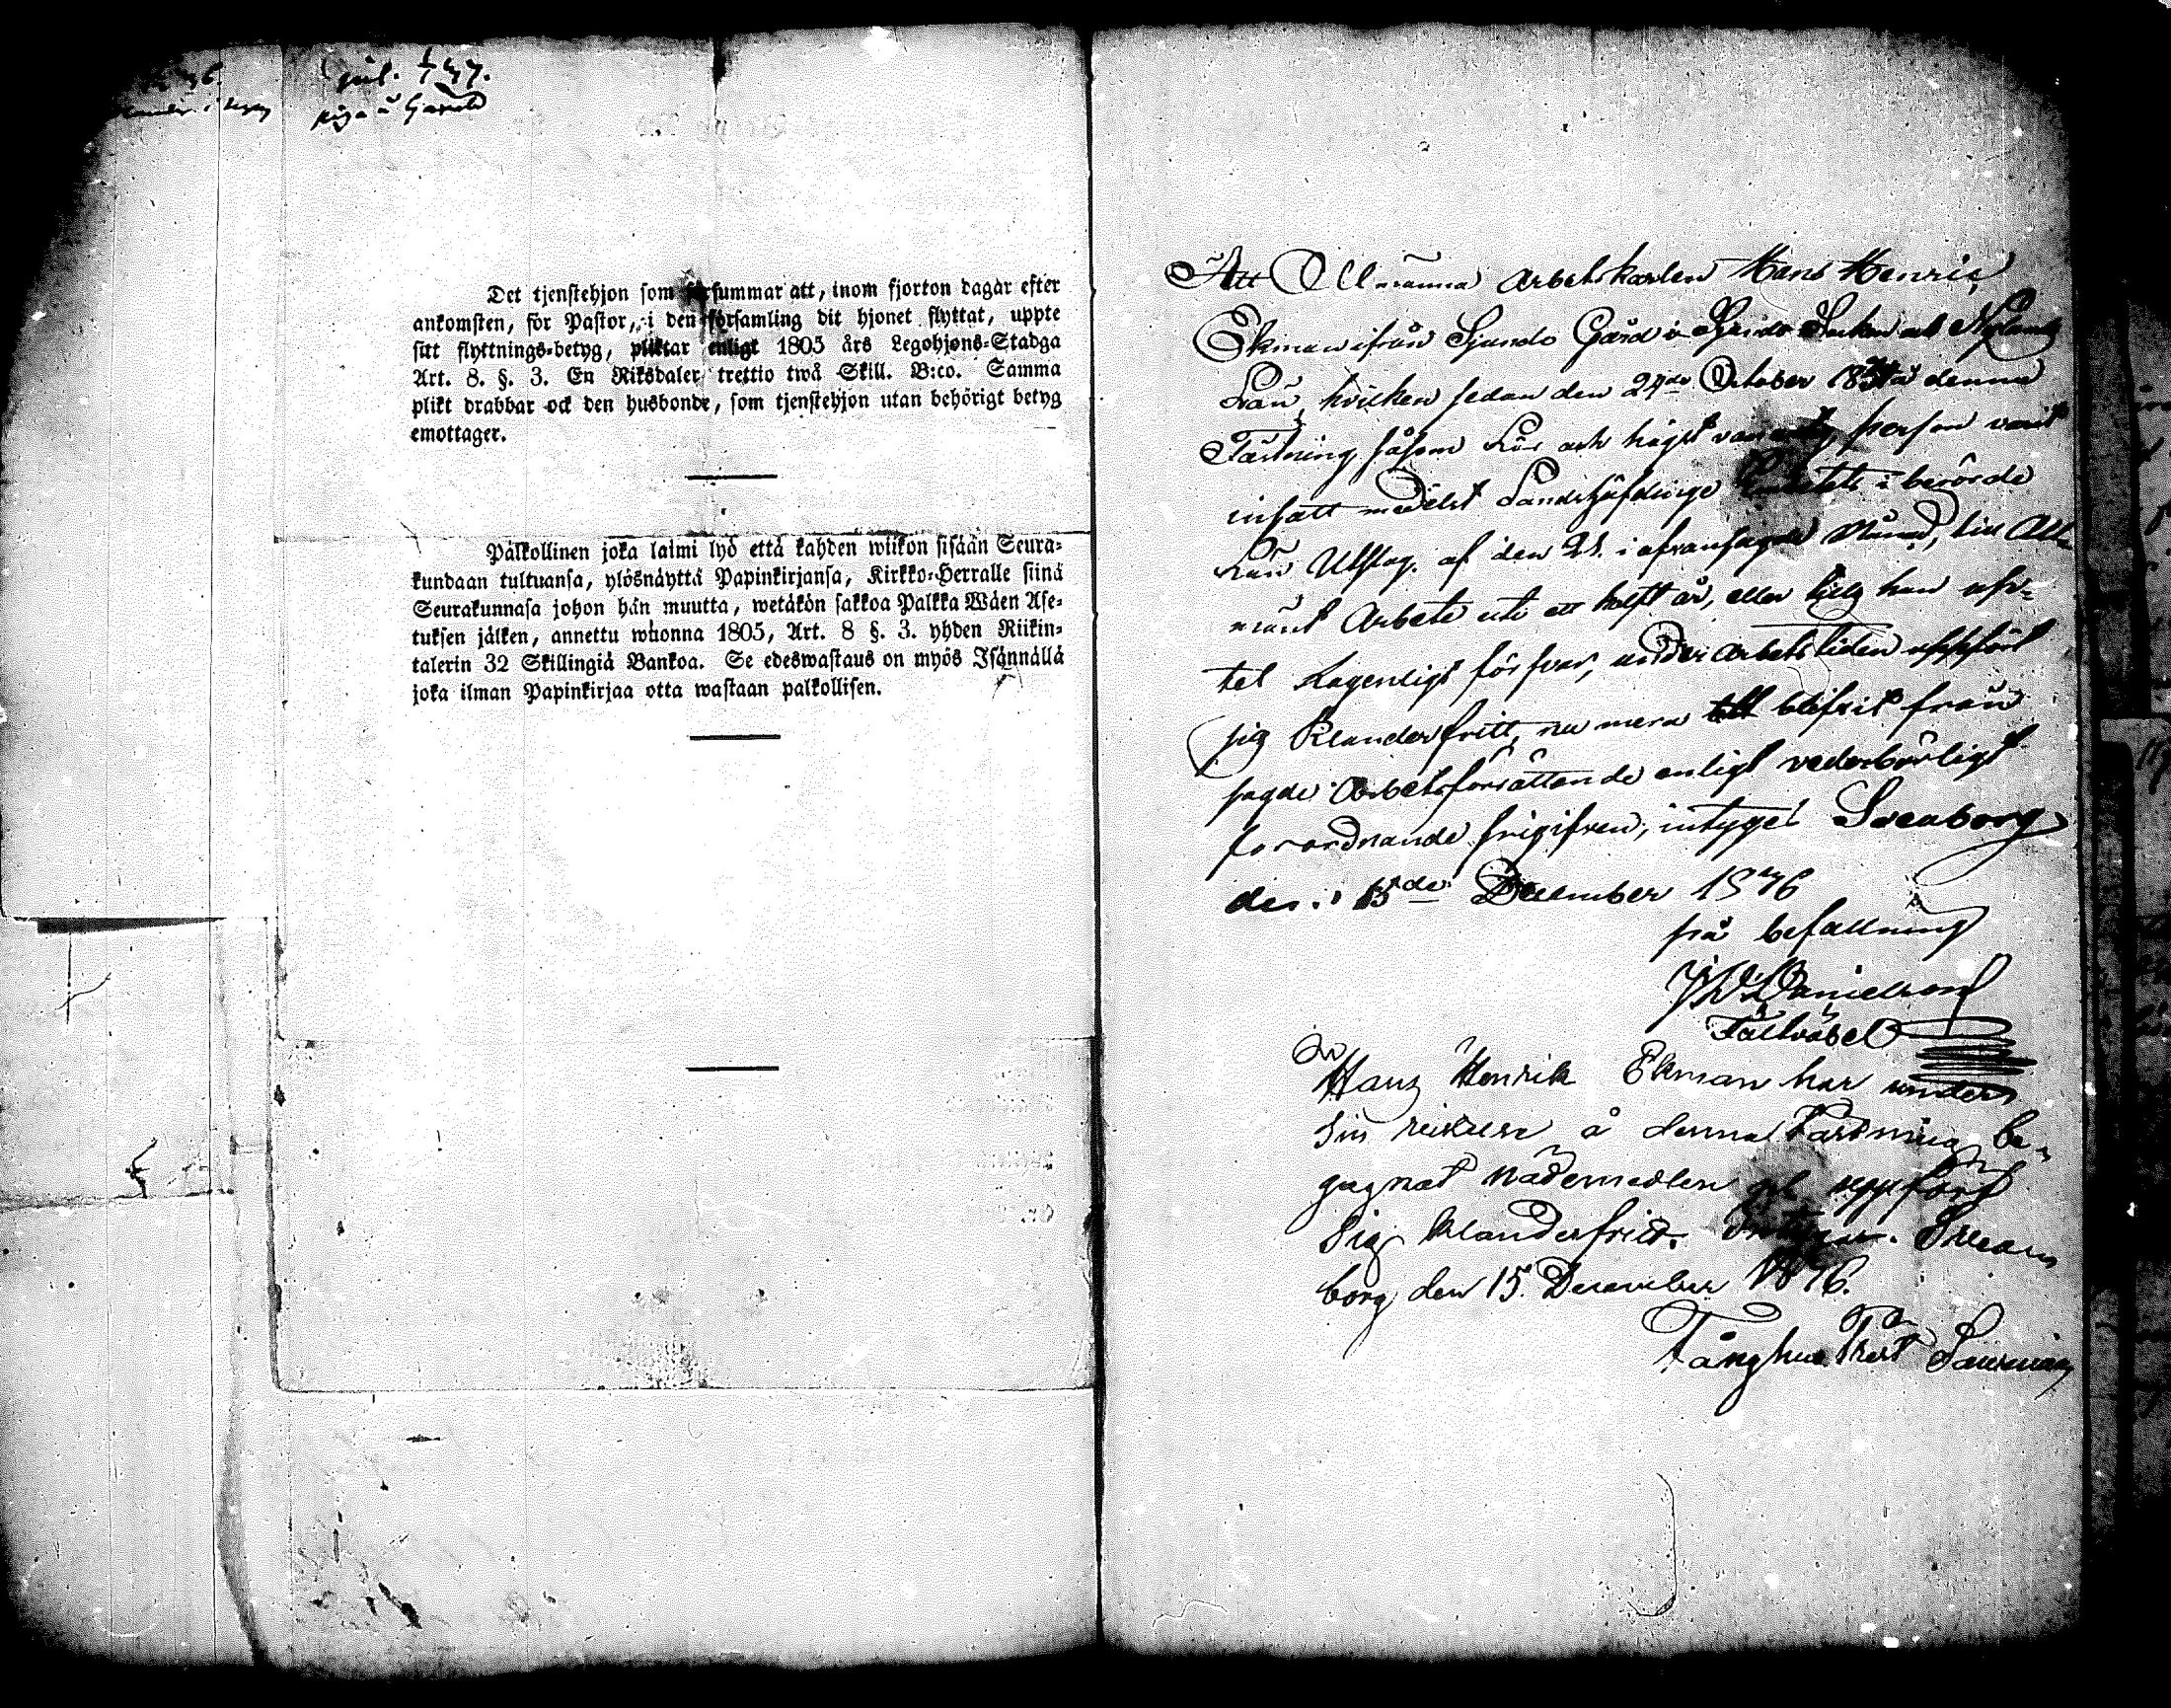 jul. 747.
piga å
Det tjenstehjon som försummar att, inom fjorton dagar efter
ankomsten, för Pastor, i den församling dit hjonet flyttat, uppte
sitt flyttnings-betyg, pliktar enligt 1805 års Legohjons-Stadga
Art. 8. §. 3. En Riksdaler trettio twå Skill. B:co. Samma
plikt drabbar ock den husbonde, som tjenstehjon utan behörigt betyg
emottager.
Palkollinen joka laimi lyö että kahden wiikon sisään Seura-
kundaan tultuansa, ylösnäyttä Papinkirjansa, Kirkko-Herralle siinä
Seurakunnasa johon hän muutta, wetäkön sakkoa Palkka Wäen Ase-
tuksen jälken, annettu wuonna 1805, Art. 8 §. 3. yhden Riikin-
talerin 32 Skillingiä Bankoa. Se edeswastaus on myös Isännällä
joka ilman Papinkirjaa otta wastaan palkollisen.
Att Allmänna Arbetskarlen Hans Henric
Ekman ifrån Sjundo Gård i Socken och Nylands
Län, hvilken sedan den 24de October å denna
Fästning såsom Lös och högst vanartig person varit
insatt medelst Landshöfdinge Embetets i berörde
Län Utslag af den 21. i ofvansagde Månad, till All-
mänt Arbete uti ett halft år, eller tills han
tet Lagenligt försvar, under arbetstiden uppfört
sig Klanderfritt, nu mera blifvit från
sagde Arbetsförrättande enligt vederbörligt
förordnande frigifven; intygas Sveaborg
den 15de December 1846
på befallning
J W Danielson
Fältväbel
Hans Henrik Ekman har under
sin vistelse å denna Fästning be-
gagnat nådemedlen och uppfört
sig klanderfritt. Intygar. Svea-
borg den 15. December 1846.